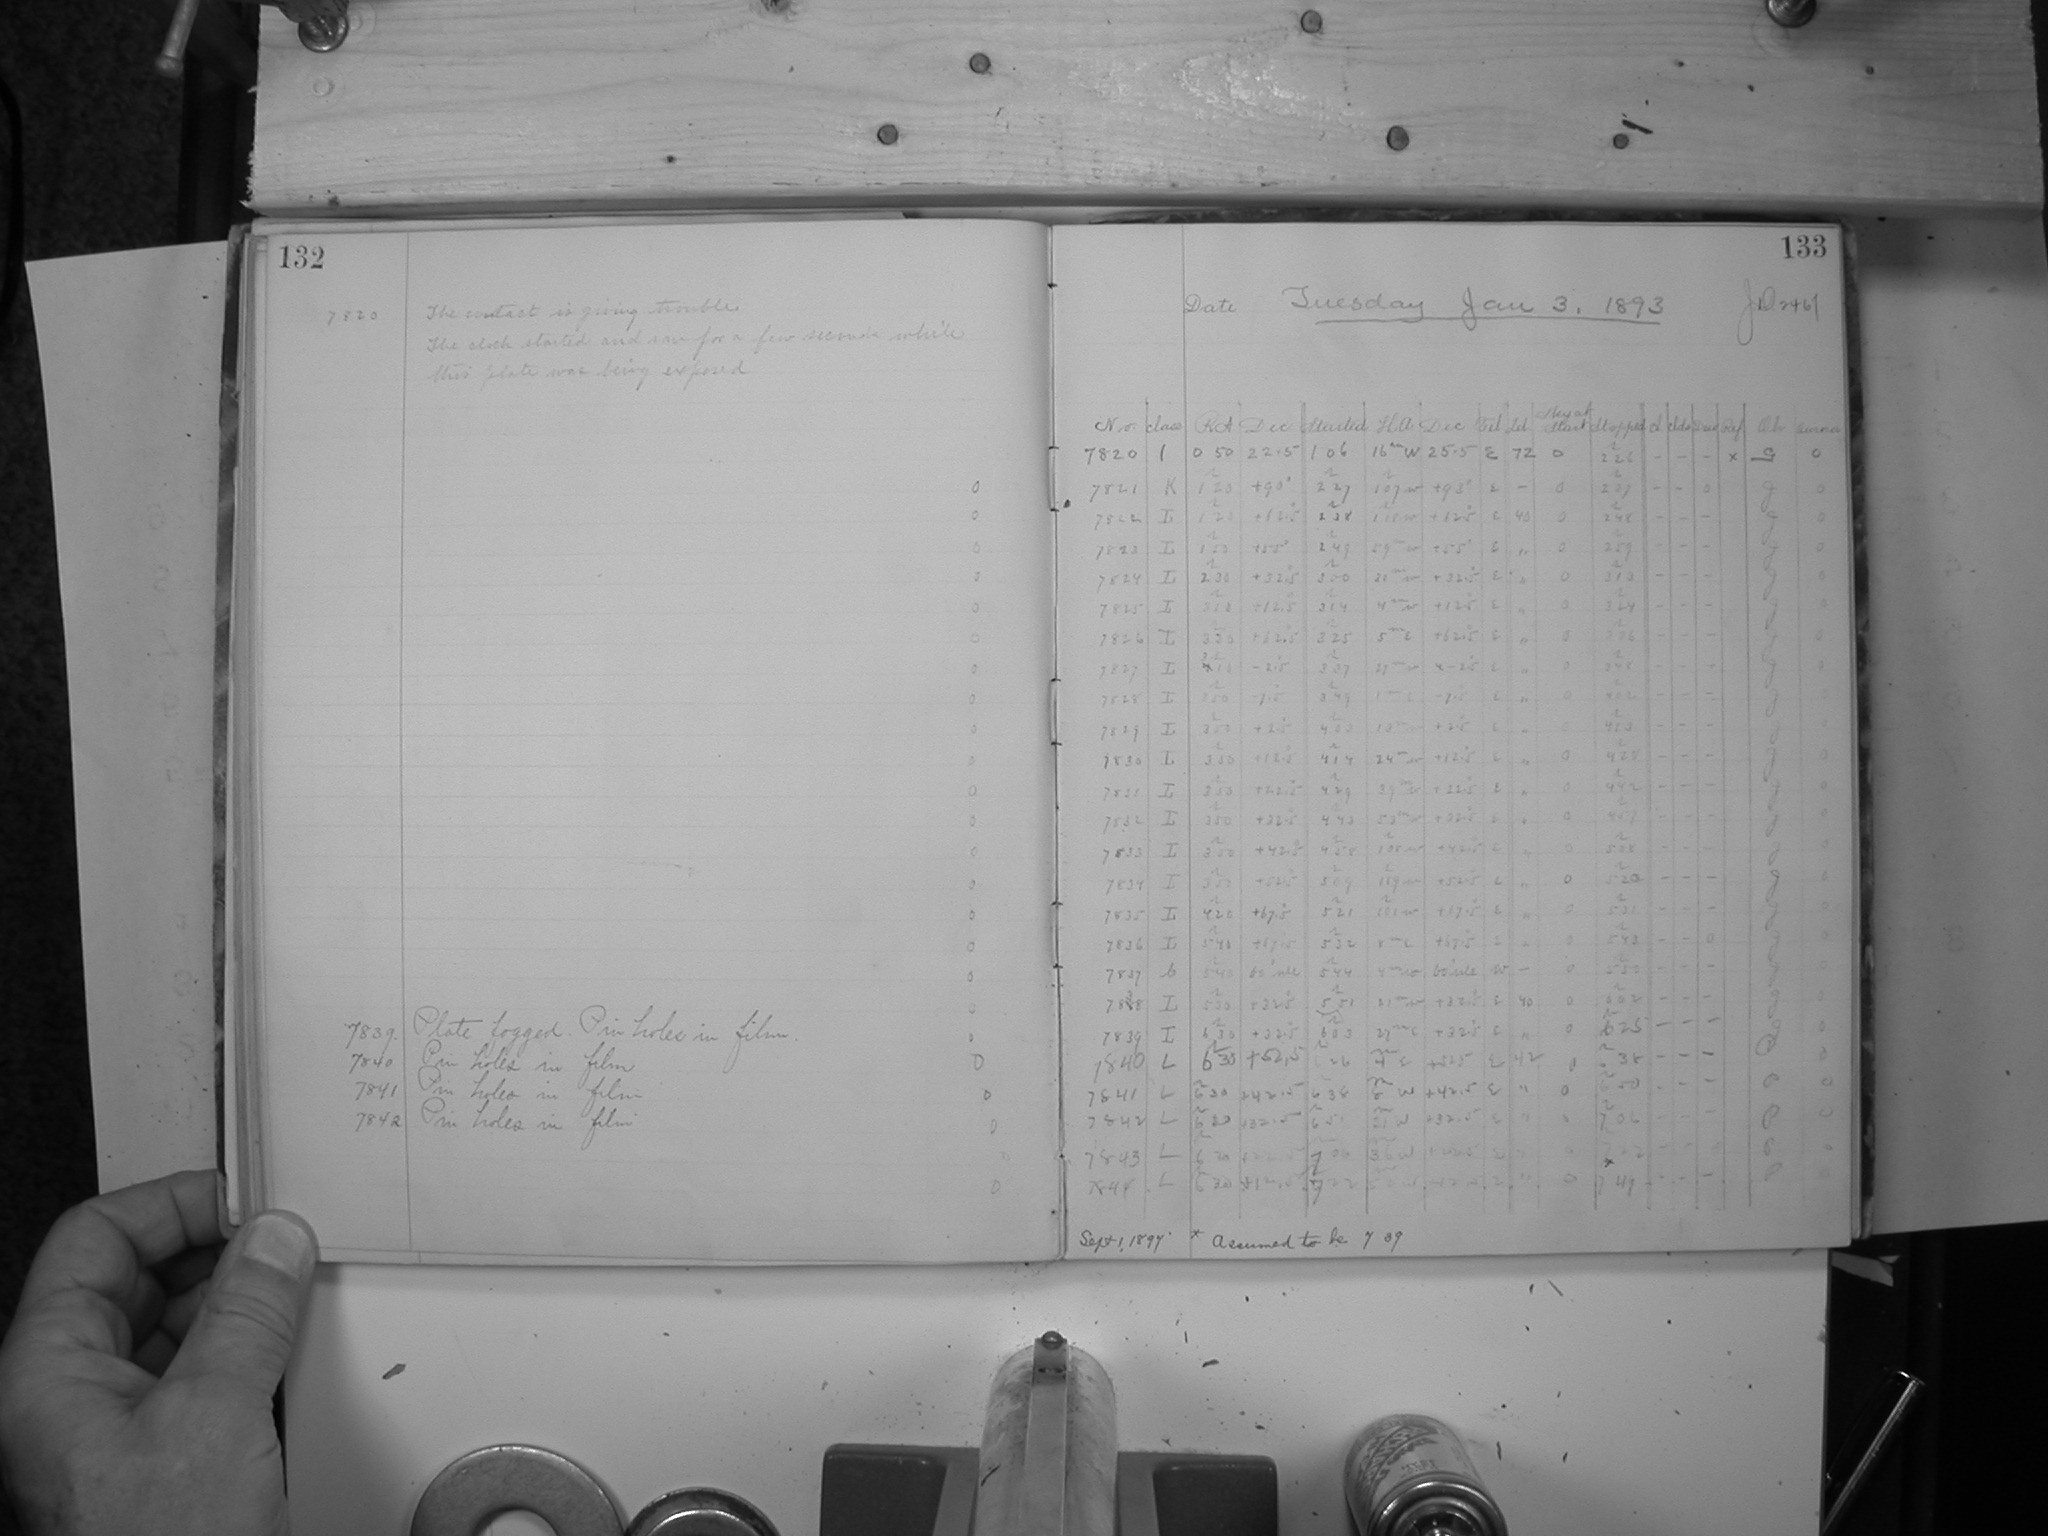 132
7820 The contact is giving trouble.
The clock started and ran for a few seconds while
this plate was being exposed
7839. Plate fogged. Pin holes in film.
7840 Pin holes in film
7841 Pin holes in film
7842 Pin holes in film
133
Date Tuesday Jan 3, 1893
No. class RA Dec Started HA Dec Stopped
7820 1 0 50 22.5 1 06 16m W 25.5 E 72 0 2 26 - - - x 0
7821 K 1 20 +90° 2 27 107 w +93° E - 0 2 37 - - 0 0
7822 I 1 20 +62.5 2 38 +62.5 E 40 0 2 48 - - - 0
7823 I 1 50 +55° 2 49 59m w +55° E " 0 2 59 - - - 0
7824 I 2 30 +32.5 3 00 +32.5 E " 0 3 13 - - - 0
7825 I 3 10 +12.5 3 14 4m w +12.5 E " 0 3 24 - - - 0
7826 I 3 30 +62.5 3 25 5m E +62.5 E " 0 3 36 - - - 0
7827 I 3 10 -2.5 3 37 27m w -2.5 E " 0 3 48 - - - 0
7828 I 3 50 -7.5 3 49 1m E -7.5 E " 0 4 02 - - - 0
7829 I 3 50 +2.5 4 03 13m w +2.5 E " 0 4 13 - - - 0
7830 I 3 50 +12.5 4 14 24m w +12.5 E " 0 4 28 - - - 0
7831 I 3 50 +22.5 4 29 39m w +22.5 E " 0 4 42 - - - 0
7832 I 3 50 +32.5 4 43 53m w +32.5 E " 0 4 57 - - - 0
7833 I 3 50 +42.5 4 58 108 w +42.5 E " 0 5 08 - - - 0
7834 I 3 50 +52.5 5 09 119 w +52.5 E " 0 5 20 - - - 0
7835 I 4 20 +67.5 5 21 101 w +67.5 E " 0 5 31 - - - 0
7836 I 5 40 +67.5 5 32 8m E +67.5 E " 0 5 43 - - 0 0
7837 6 5 40 5 44 4m w W - 0 5 50 - - - 0
7838 I 5 30 +32.5 5 51 21m w +32.5 E 40 0 6 02 - - - 0
7839 I 6 30 +32.5 6 03 27m E +32.5 E " 0 6 25 - - - 0
7840 L 6 30 +52.5 26 4 E +52.5 E 42 0 6 38 - - - 0
7841 L 6 30 +42.5 6 38 8 W +42.5 E " 0 6 50 - - - 0
7842 L 6 30 +32.5 6 51 21 W +32.5 E " 0 7 06 - - - 0
7843 L 6 30 7 06 36 W
7844 L 6 30 +12.5 7 22 0 7 49 - - -
Sept 1, 1897. * Assumed to be 7 39